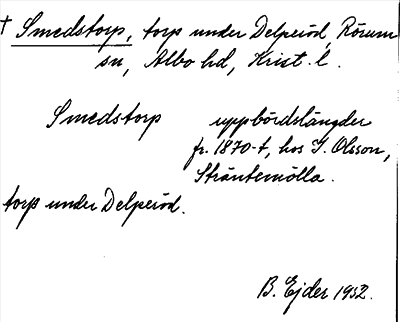 † Smedstorp, torp under Delperöd, Rörum
sn, Albo hd, Krist. l.
Smedstorp uppbördslängder
fr. 1870-t, hos J. Olsson,
Sträntemölla.
torp under Delperöd.
B. Ejder 1932.